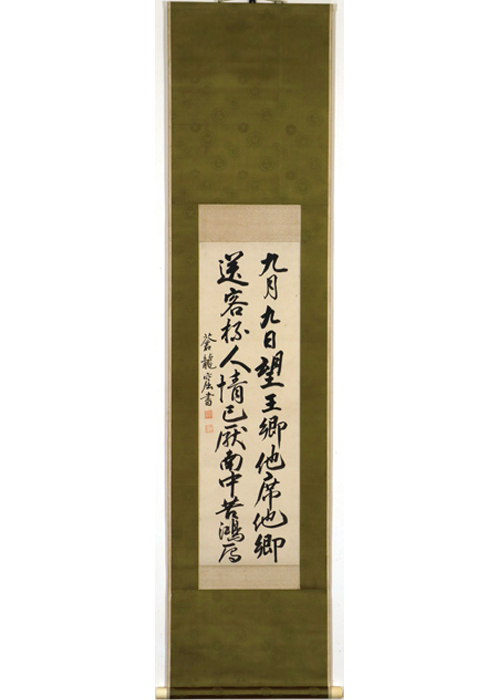 九月九日望王鄉他席他鄉
送客杯人情已厭南中苦鴻雁
蒼龍窟書